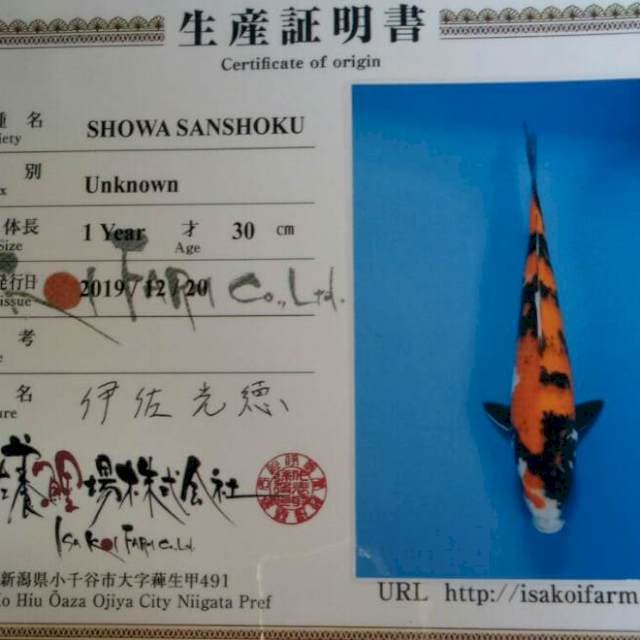 生産証明書
Certificate of origin
種名
iety SHOWA SANSHOKU
別
x Unknown
体長 1 Year 才 30 cm
Size Age
発行日 2019/12/20
issue
KOI FARM Co., Ltd.
考
e
名 伊佐光徳
ure
養鯉場株式会社
ISA KOI FARM Co., Ltd.
新潟県小千谷市大字薭生甲491
Ko Hiu Ōaza Ojiya City Niigata Pref
URL http://isakoifarm